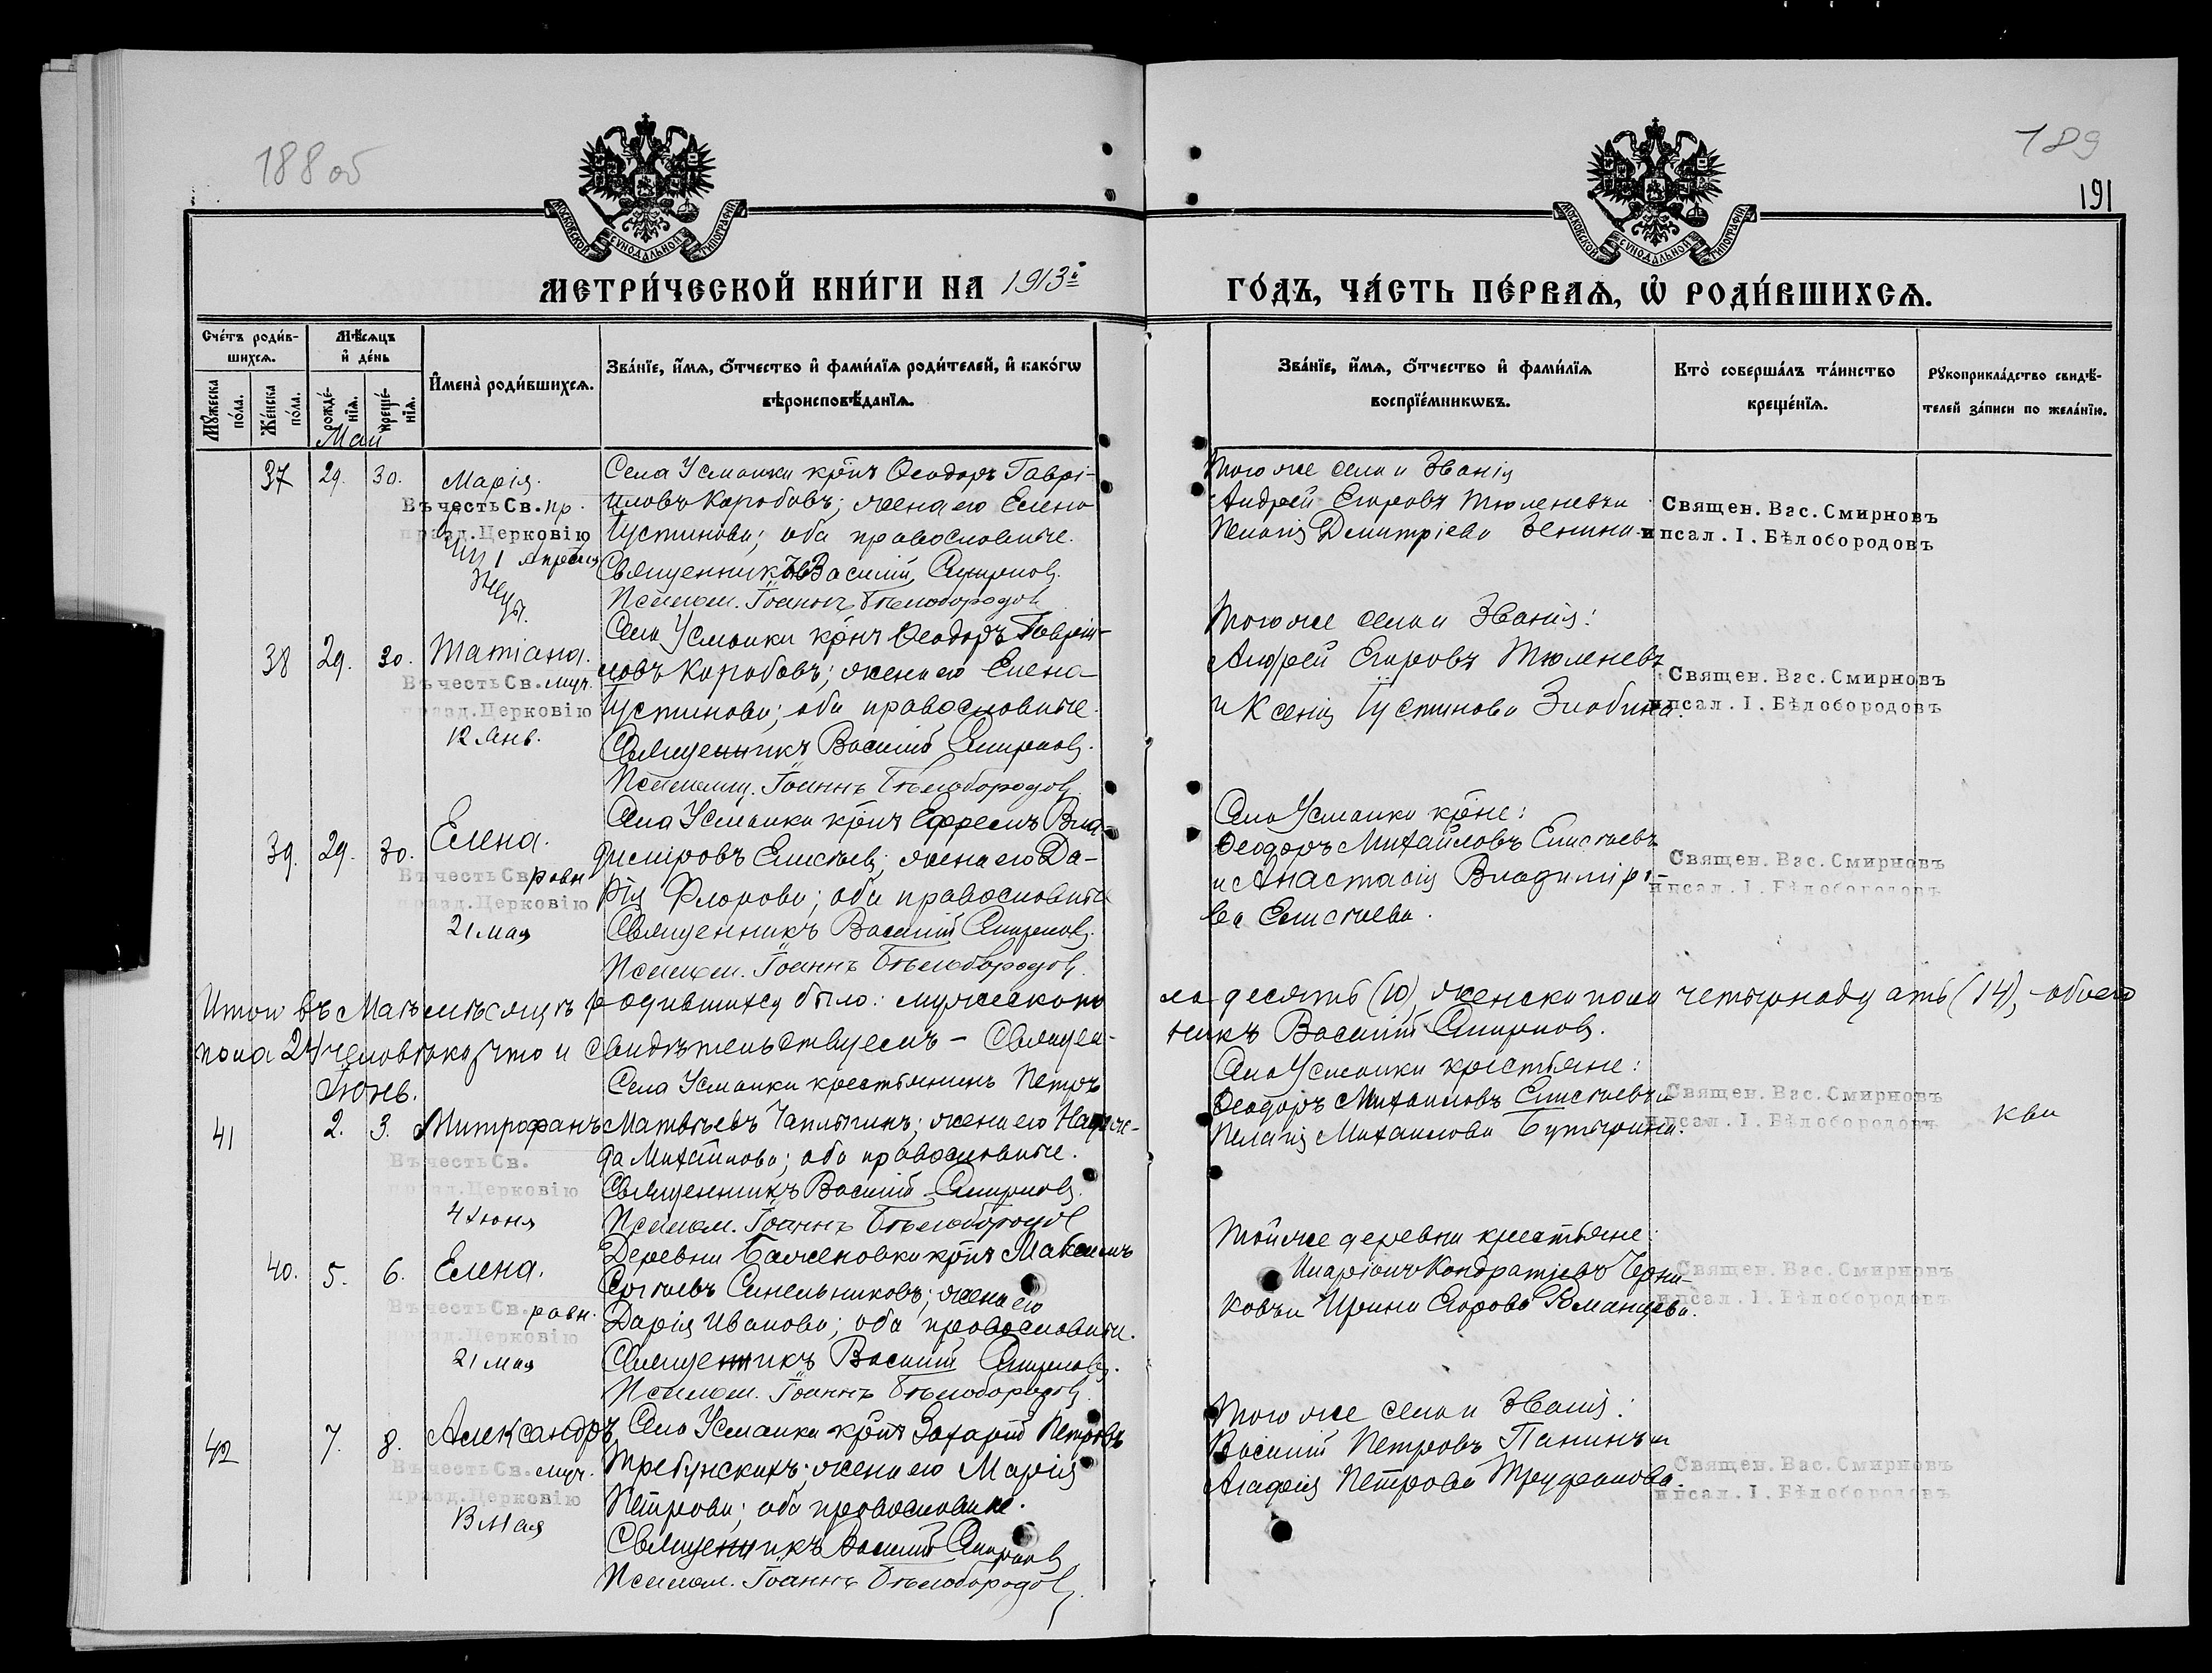 188 об
189
191
МОСКОВСКОЙ СѴНОДАЛЬНОЙ ТИПОГРАФІИ
МОСКОВСКОЙ СѴНОДАЛЬНОЙ ТИПОГРАФІИ
МЕТРИ́ЧЕСКОЙ КНИ́ГИ НА 1913й
ГО́ДЪ, ЧА́СТЬ ПЕ́РВАѦ, Ѡ҆ РОДИ́ВШИХСѦ.
Сче́тъ роди́в-
шихсѧ.
Мꙋ́жеска по́ла.
Же́нска по́ла.
Мѣ́сѧцъ и҆ де́нь
рожде́-нїѧ.
креще́-нїѧ.
И҆мена̀ роди́вшихсѧ.
Зва́нїе, и҆́мѧ, ѻ҆́тчество и҆ фами́лїѧ роди́телей, и҆ како́гѡ
вѣроисповѣ́данїѧ.
Зва́нїе, и҆́мѧ, ѻ҆́тчество и҆ фами́лїѧ
воспрїе́мникѡвъ.
Кто̀ соверша́лъ та́инство
креще́нїѧ.
Рꙋкоприкла́дство свидѣ́-
телей за́писи по жела́нїю.
Май
37 29. 30. Марія.
Въ честь Св. пр.
празд. Церковію
1 Апреля
Села Усманки крнъ Ѳеодоръ Гаврі-
иловъ Коробовъ; жена его Елена
Іустинова; оба православные.
Священникъ Василій Смирновъ.
Псалом. Іоаннъ Бѣлобородовъ
Того же села и званія
Андрей Егоровъ Тюленевъ и
Пелагія Димитріева Зенина.
Священ. Вас. Смирновъ
и псал. І. Бѣлобородовъ
38 29. 30. Татіана.
Въ честь Св. муч.
празд. Церковію
12 Янв.
Села Усманки крнъ Ѳеодоръ Гавріи-
ловъ Коробовъ; жена его Елена
Іустинова; оба православные.
Священникъ Василій Смирновъ.
Псаломщ. Іоаннъ Бѣлобородовъ.
Того же села и званія:
Андрей Егоровъ Тюленевъ
и Ксенія Іустинова Злобина.
Священ. Вас. Смирновъ
и псал. І. Бѣлобородовъ
39. 29. 30. Елена.
Въ честь Св. равн
празд. Церковію
21 мая
Села Усманки крнъ Ефремъ Вла-
диміровъ Елисѣевъ; жена его Да-
рія Флорова; оба православные
Священникъ Василій Смирновъ.
Псалом. Іоаннъ Бѣлобородовъ.
Села Усманки крне:
Ѳеодоръ Михайловъ Елисѣевъ
и Анастасія Владиміро-
ва Елисѣева.
Священ. Вас. Смирновъ
и псал. І. Бѣлобородовъ
Итого въ Маѣ мѣсяцѣ родившихся было: мужеска по
ла десять (10), женска пола четырнадцать (14), обоего
пола 24 человѣка, что и свидѣтельствуемъ - Священ-
никъ Василій Смирновъ.
Іюнь.
41 2. 3. Митрофанъ
Въ честь Св.
празд. Церковію
4 Іюня
Села Усманки крестьянинъ Петръ
Матвѣевъ Чаплыгинъ; жена его Надеж-
да Михайлова; оба православные.
Священникъ Василій Смирновъ.
Псалом. Іоаннъ Бѣлобородовъ
Села Усманки крестьяне:
Ѳеодоръ Михаиловъ Елисѣевъ и
Пелагія Михаилова Бутырина.
Священ. Вас. Смирновъ
и псал. І. Бѣлобородовъ
40. 5. 6. Елена.
Въ честь Св. равн.
празд. Церковію
21 мая
Деревни Баженовки крнъ Максимъ
Сергѣевъ Синельниковъ; жена его
Дарія Иванова; оба православные.
Священникъ Василій Смирновъ.
Псалом. Іоаннъ Бѣлобородовъ.
Той же деревни крестьяне:
Иларіонъ Кондратіевъ Черни-
ковъ и Ирина Егорова Романцева.
Священ. Вас. Смирновъ
и псал. І. Бѣлобородовъ
42 7. 8. Александръ
Въ честь Св. муч.
празд. Церковію
13 Мая
Села Усманки крнъ Захарій Петровъ
Требунскихъ; жена его Марія
Петрова; оба православные.
Священникъ Василій Смирновъ
Псалом. Іоаннъ Бѣлобородовъ.
Того же села и званія:
Василій Петровъ Панинъ и
Агафія Петрова Труфанова.
Священ. Вас. Смирновъ
и псал. І. Бѣлобородовъ